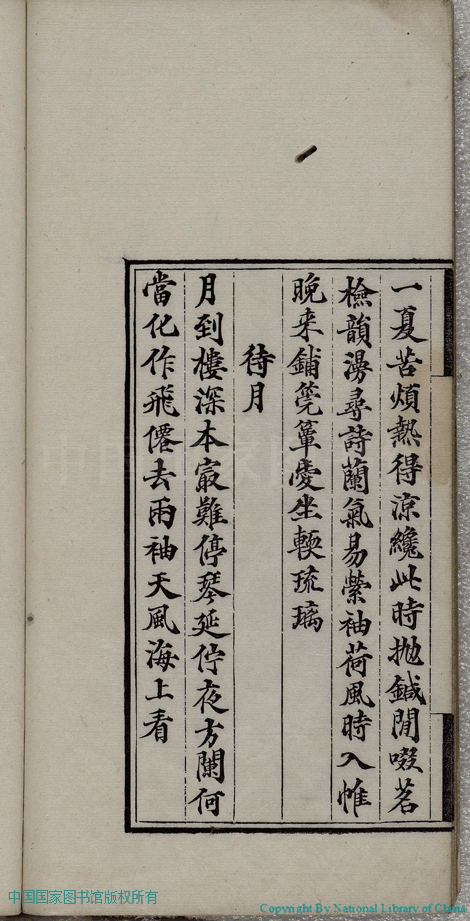 一夏苦煩熱得涼纔此時拋鍼閒啜茗
檢韻漫尋詩蘭氣易縈袖荷風時入帷
晚來鋪筦簟愛坐輭琉璃
待月
月到樓深本㝡難停琴延佇夜方闌何
當化作飛僊去兩袖天風海上看
中国国家图书馆版权所有
Copyright By National Library of China